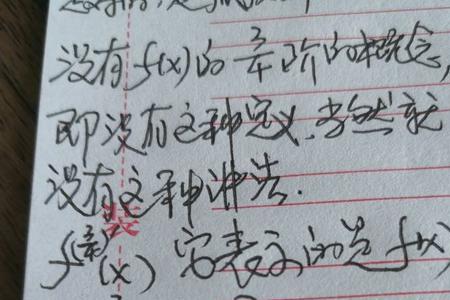 没有f(x)的3/4阶的概念,
即没有这种定义.当然就
没有这种讲法.
装
(x) 它表示的是f(x)